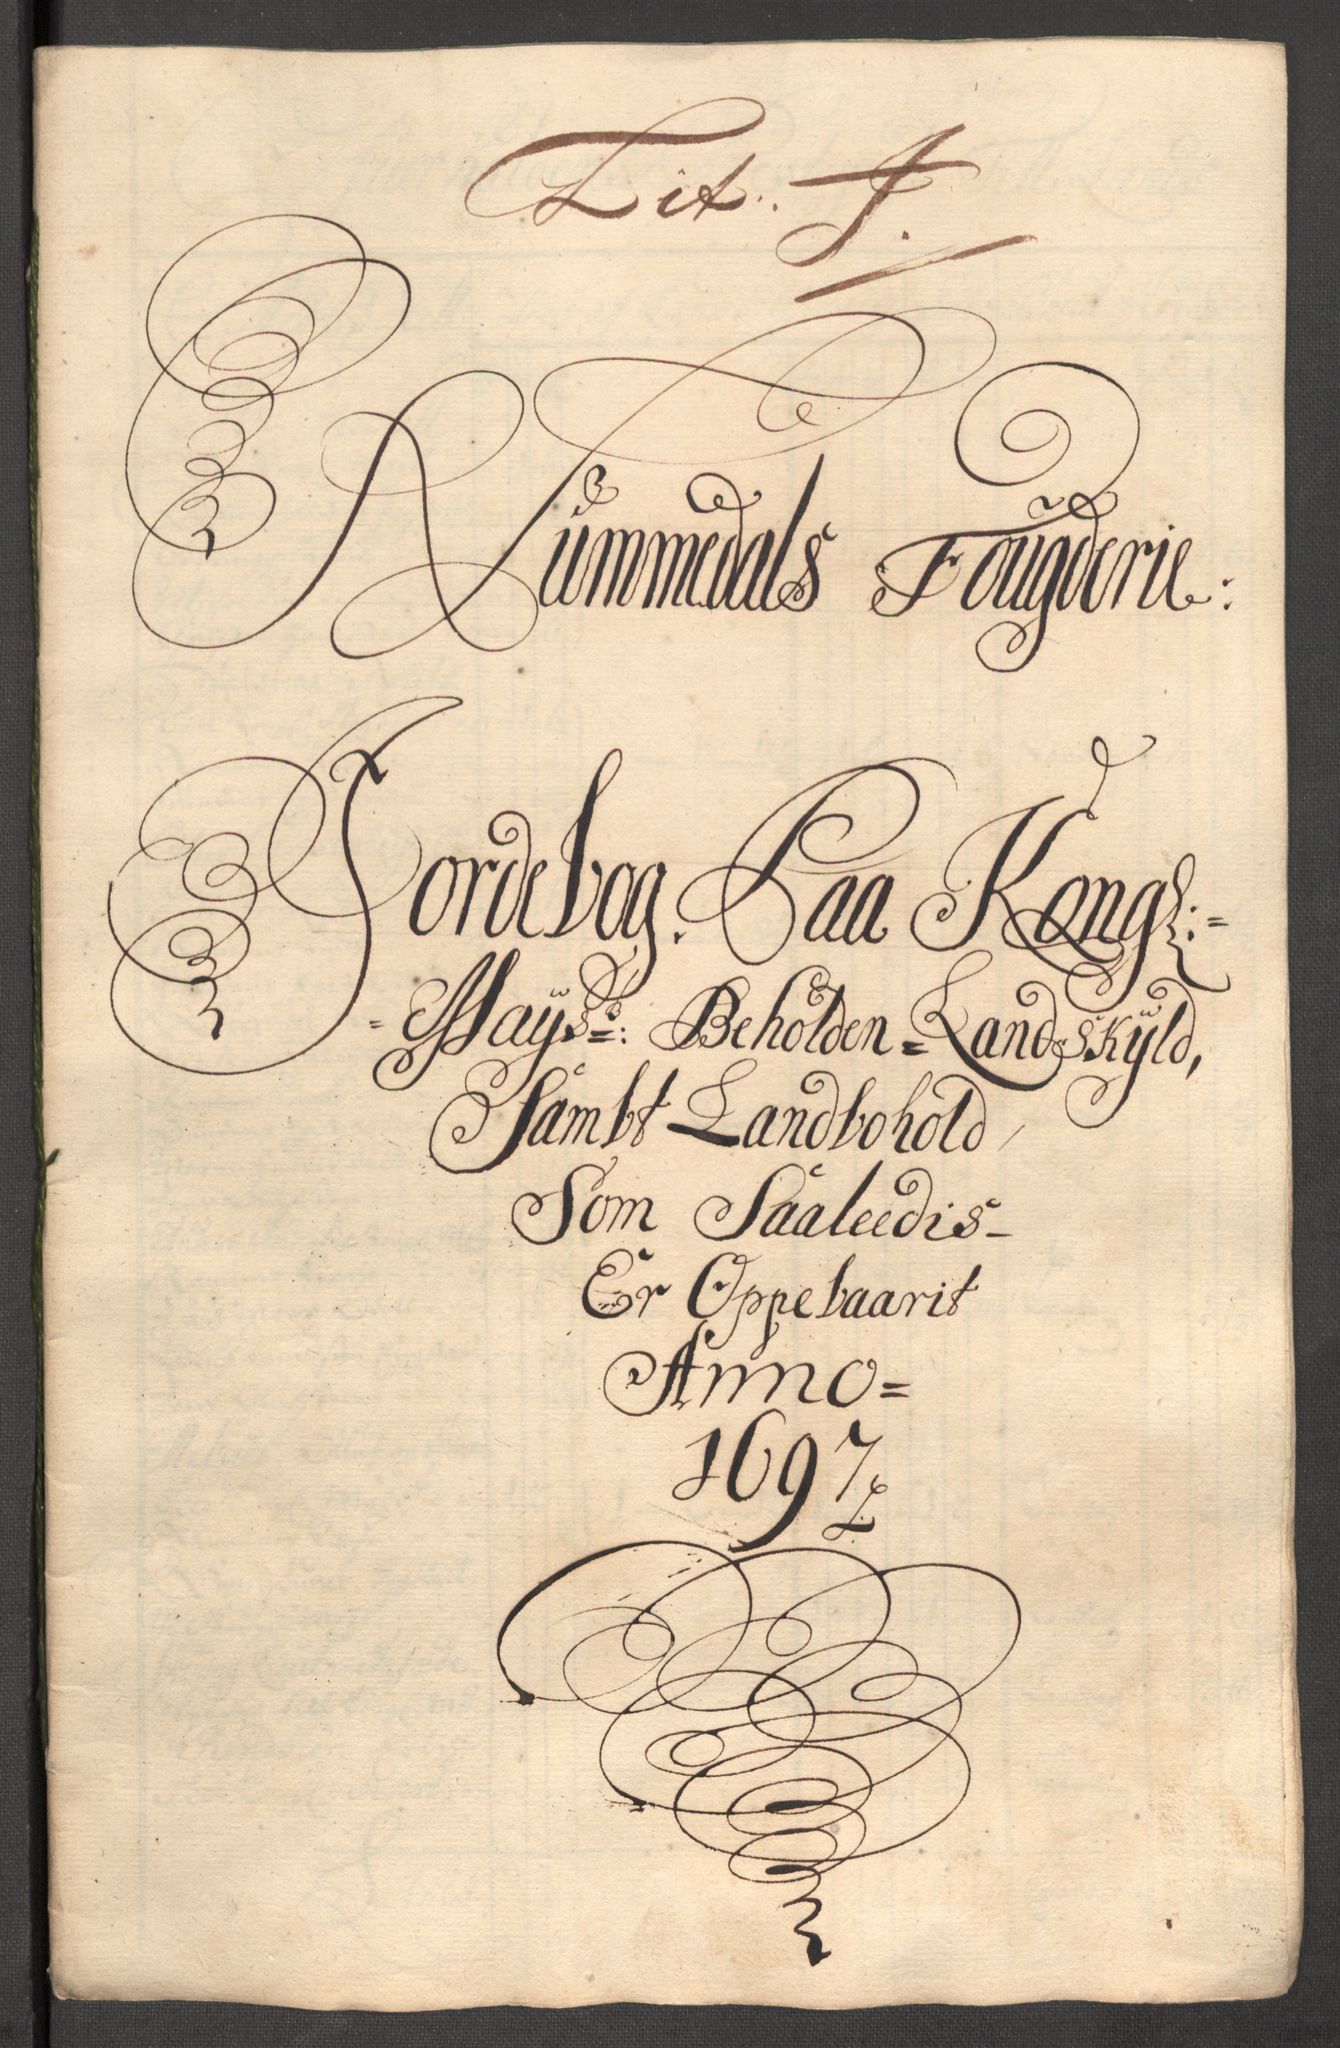 Lit. A.
Nummedals Fougderie:
Jordebog. Paa Kongl:=
=Mayss: Beholden=Landskÿld,
Sambt Landbohold
Som Saaleedis-
Er Oppebaarit
Anno=
1697